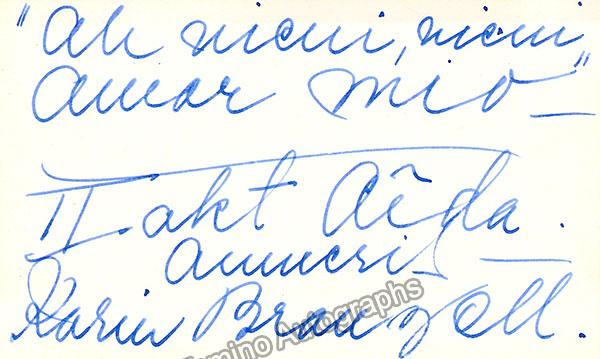 "Ah vieni, vieni
amor mio—"
II. akt Aïda.
Amneris—
Karin Branzell.
Tamino Autographs